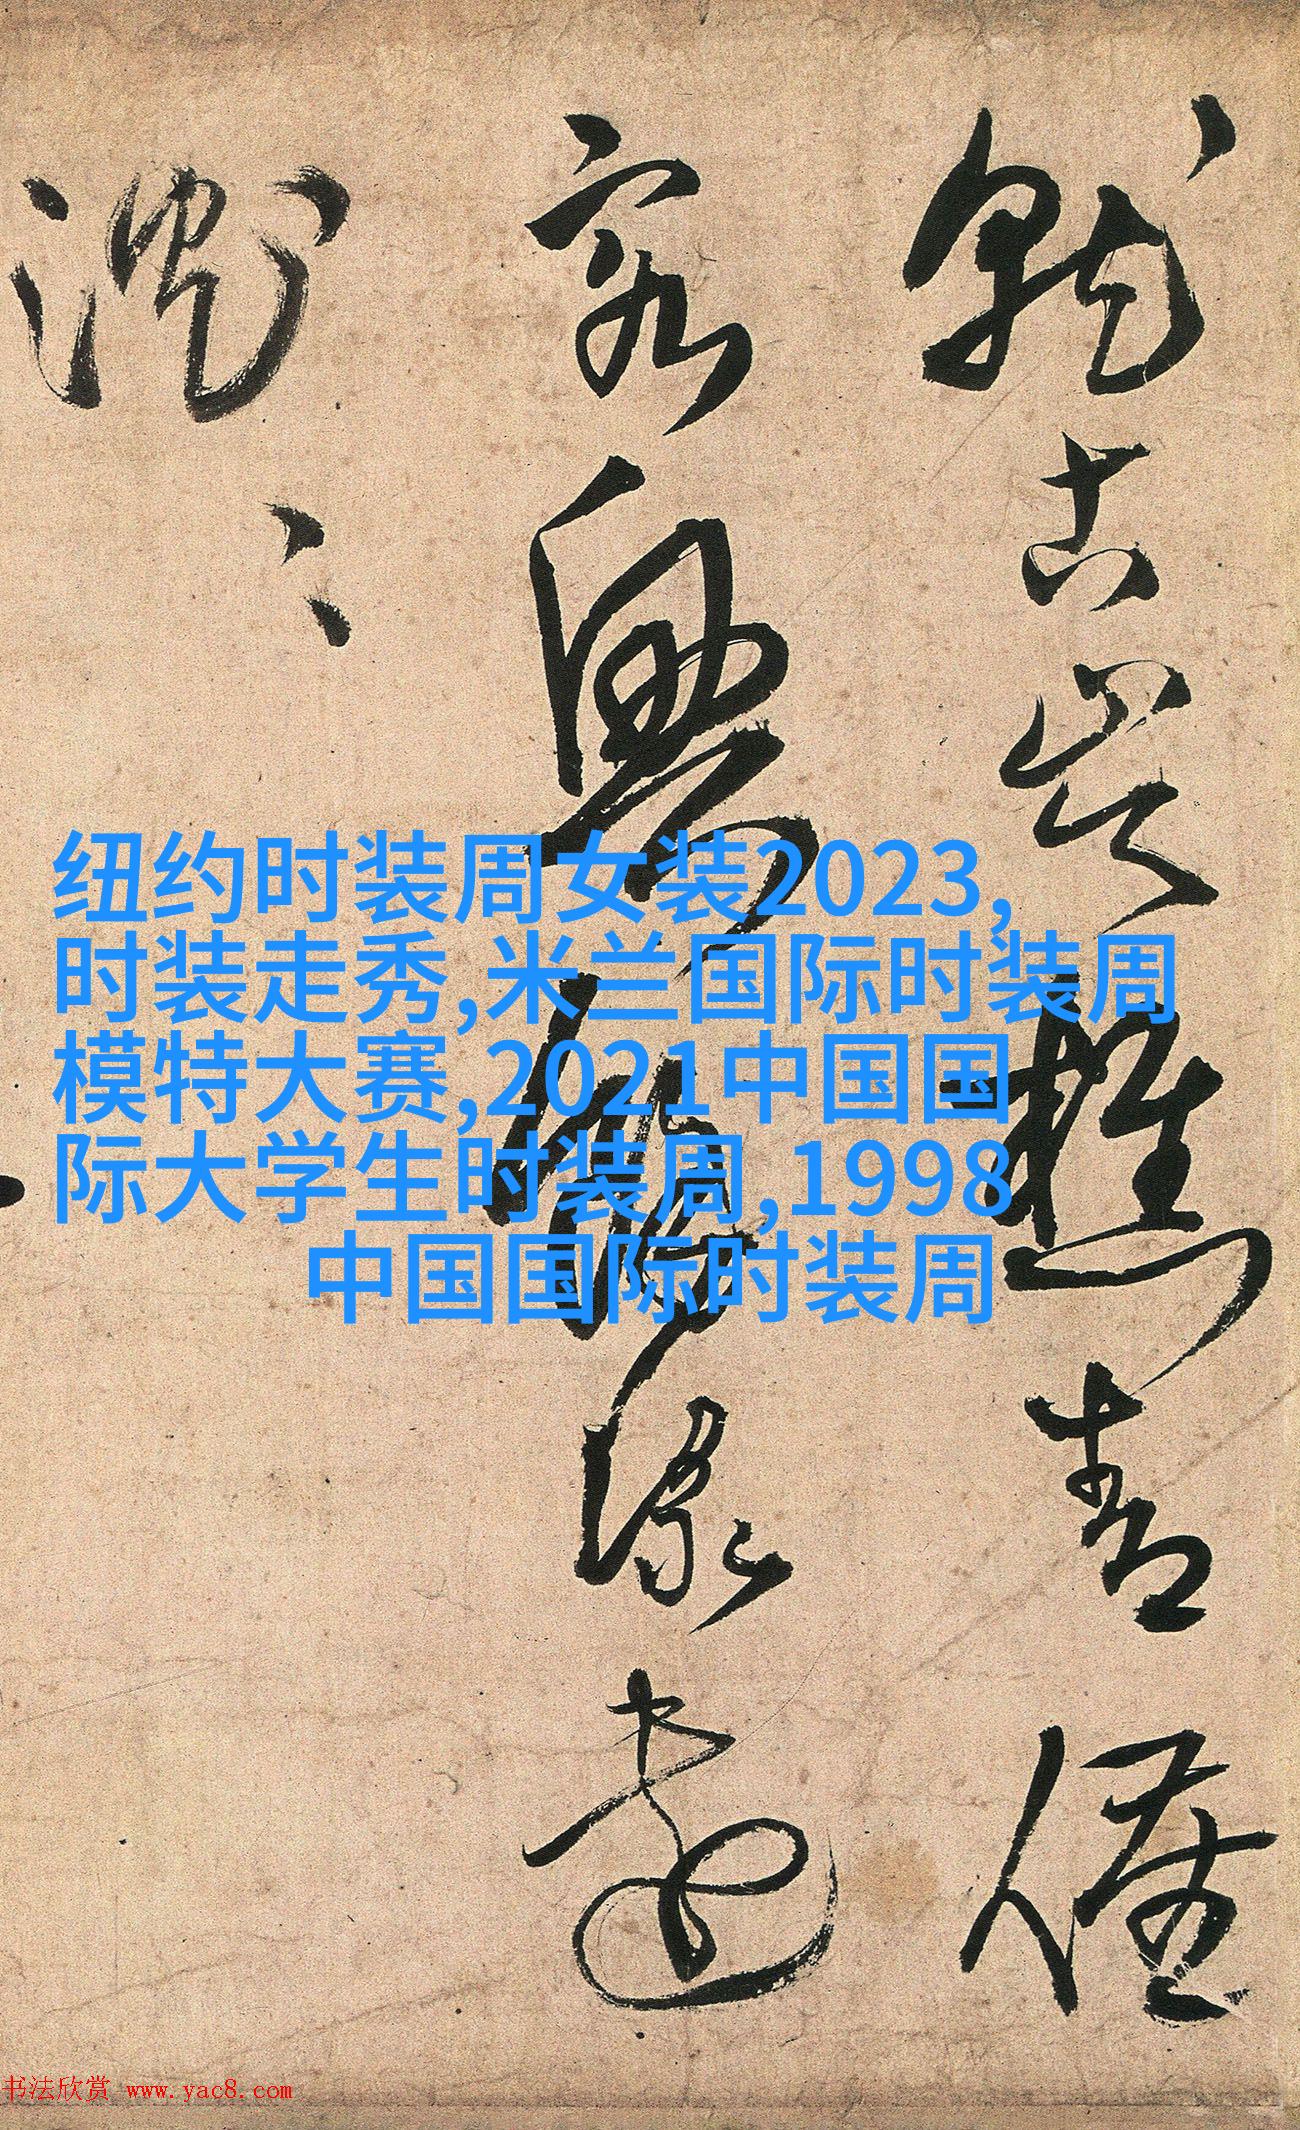 就古岩樵青僅
容與
緑
渺
纽约时装周女装2023,
时装走秀,米兰国际时装周
模特大赛,2021中国国
际大学生时装周,1998
中国国际时装周
书法欣赏 www.yac8.com